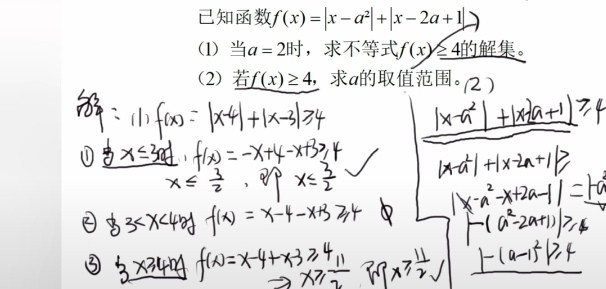 已知函数f(x)=|x-a²|+|x-2a+1|
(1) 当a=2时，求不等式f(x)≥4的解集。
(2) 若f(x)≥4，求a的取值范围。
解：(1) f(x)=|x-4|+|x-3|≥4
① 当x≤3时，f(x)=-x+4-x+3≥4 ✓
x≤3/2，即 x≤3/2
② 当3<x<4时 f(x)=x-4-x+3≥4 ϕ
③ 当x≥4时 f(x)=x-4+x-3≥4
→ x≥11/2 即x≥11/2 ✓
(2)
|x-a²|+|x-2a+1|≥4
|x-a²|+|x-2a+1|≥
|x-a²-x+2a-1|=|-a²
|-(a²-2a+1)|≥4
|-(a-1)²|≥4